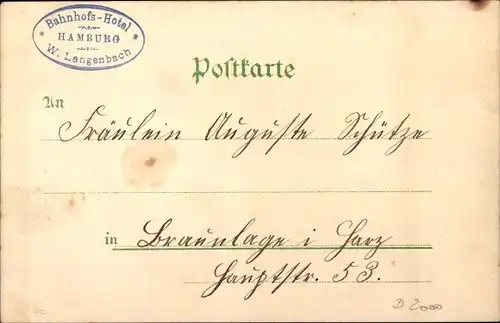 Bahnhofs-Hotel
HAMBURG
W. Langenbach
Postkarte
An
Fräulein Auguste Schütze
in Braunlage i Harz
Hauptstr. 53.
D 2000